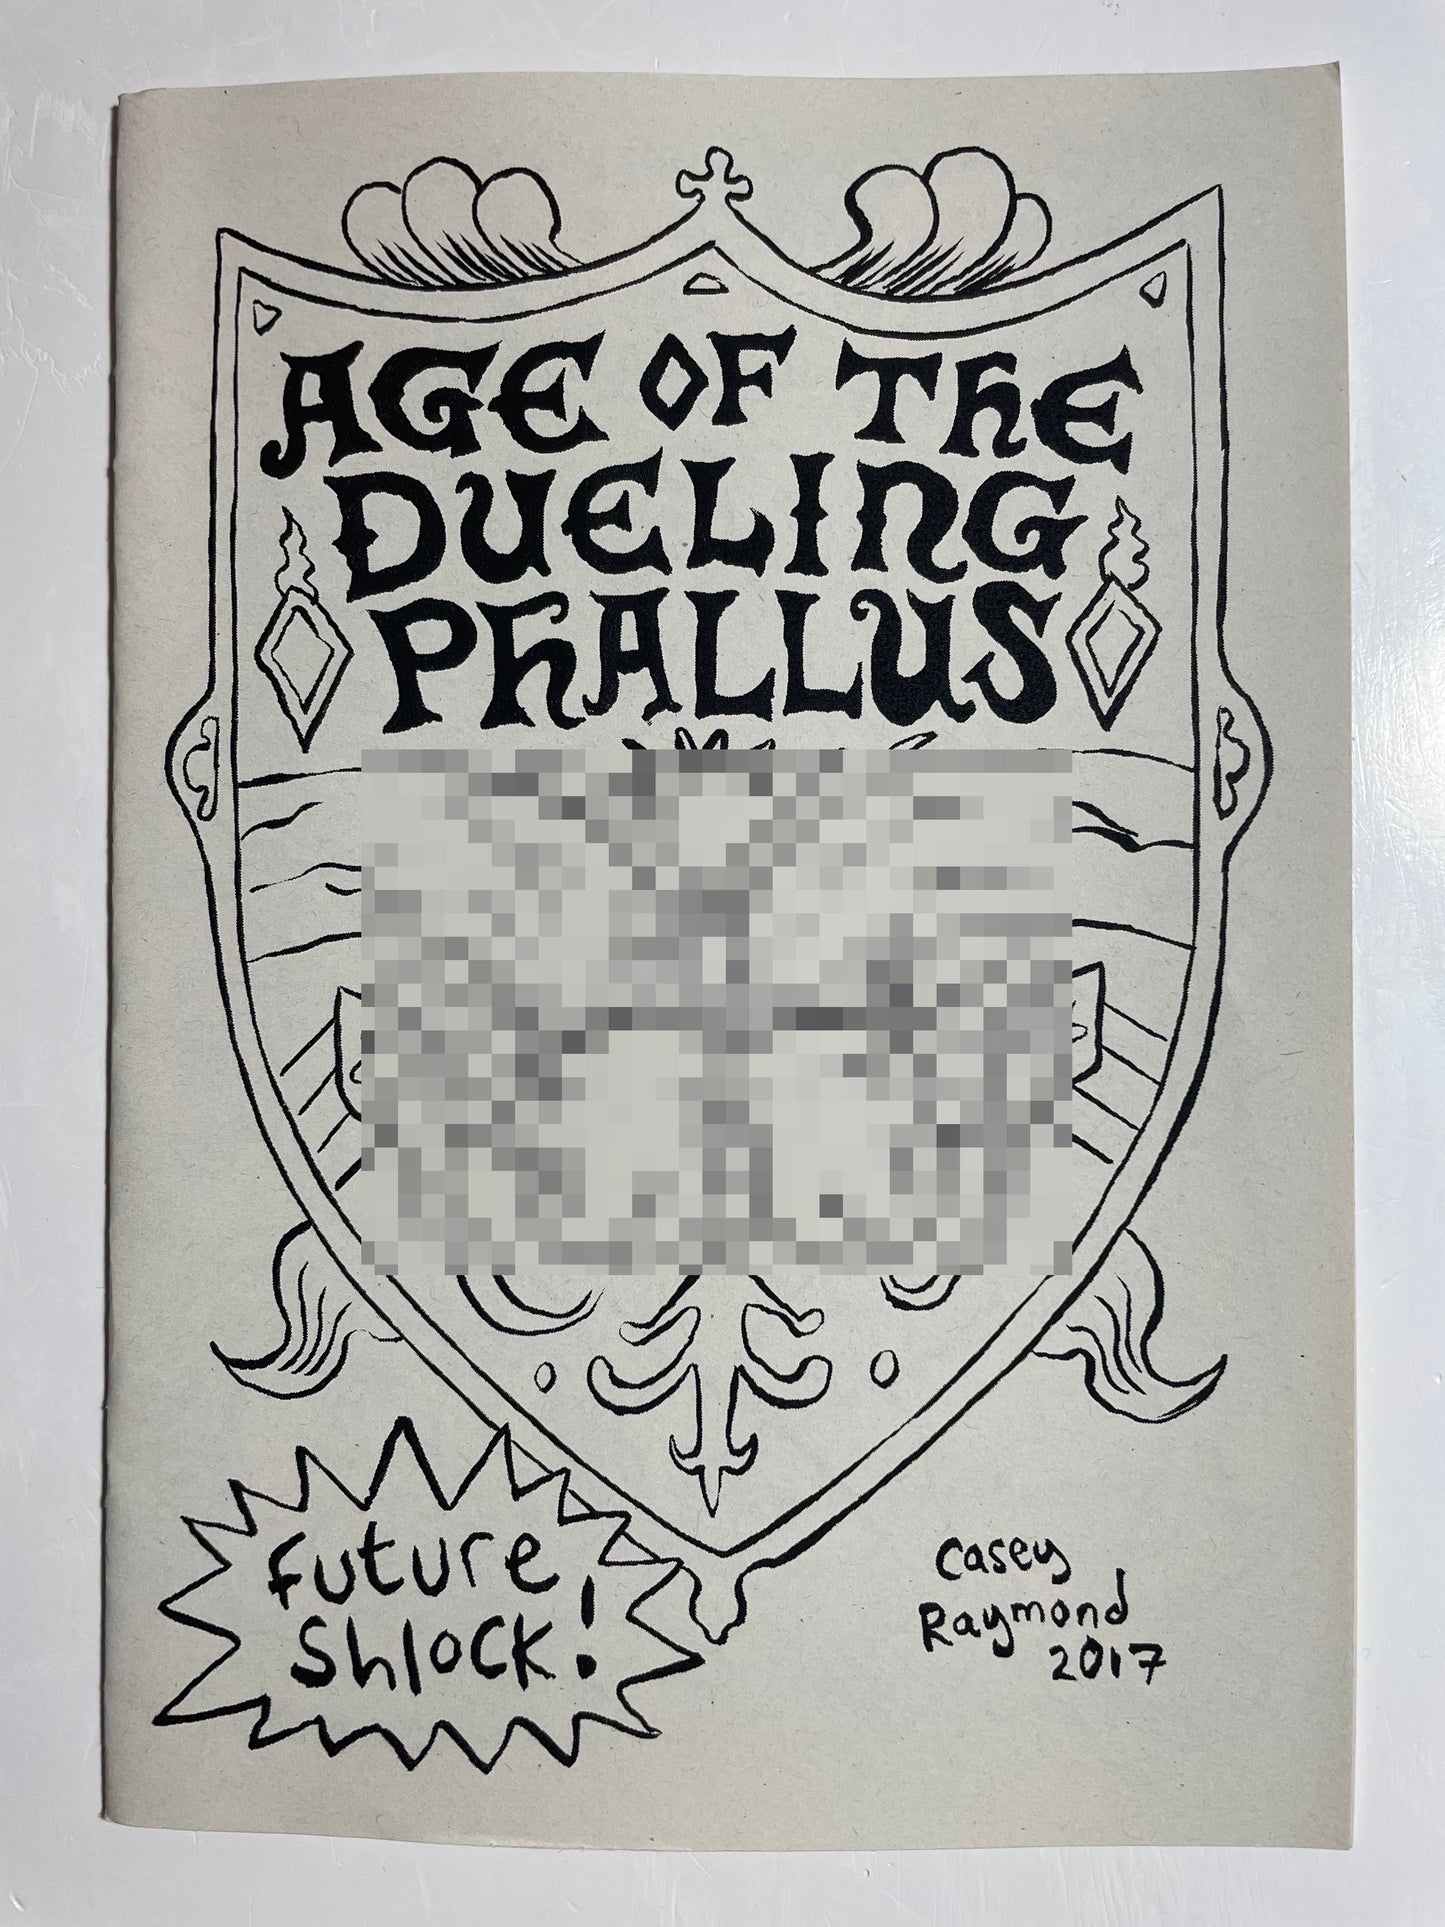 AGE OF THE
DUELING
PHALLUS
future
Shlock!
Casey
Raymond
2017